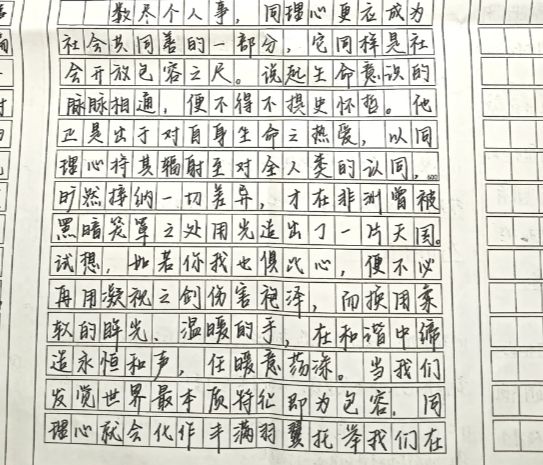 数尽个人事，同理心更应成为
社会共同善的一部分，它同样是社
会开放包容之尺。说起生命意识的
脉脉相通，便不得不提史怀哲。他
正是出于对自身生命之热爱，以同
理心将其辐射至对全人类的认同，600
旷然接纳一切差异，才在非洲曾被
黑暗笼罩之处用光造出了一片天国。
试想，如若你我也俱此心，便不必
再用凝视之剑伤害袍泽，而换用柔
软的眸光、温暖的手，在和谐中缔
造永恒和声，任暖意荡漾。当我们
发觉世界最本质特征即为包容，同
理心就会化作丰满羽翼托举我们在